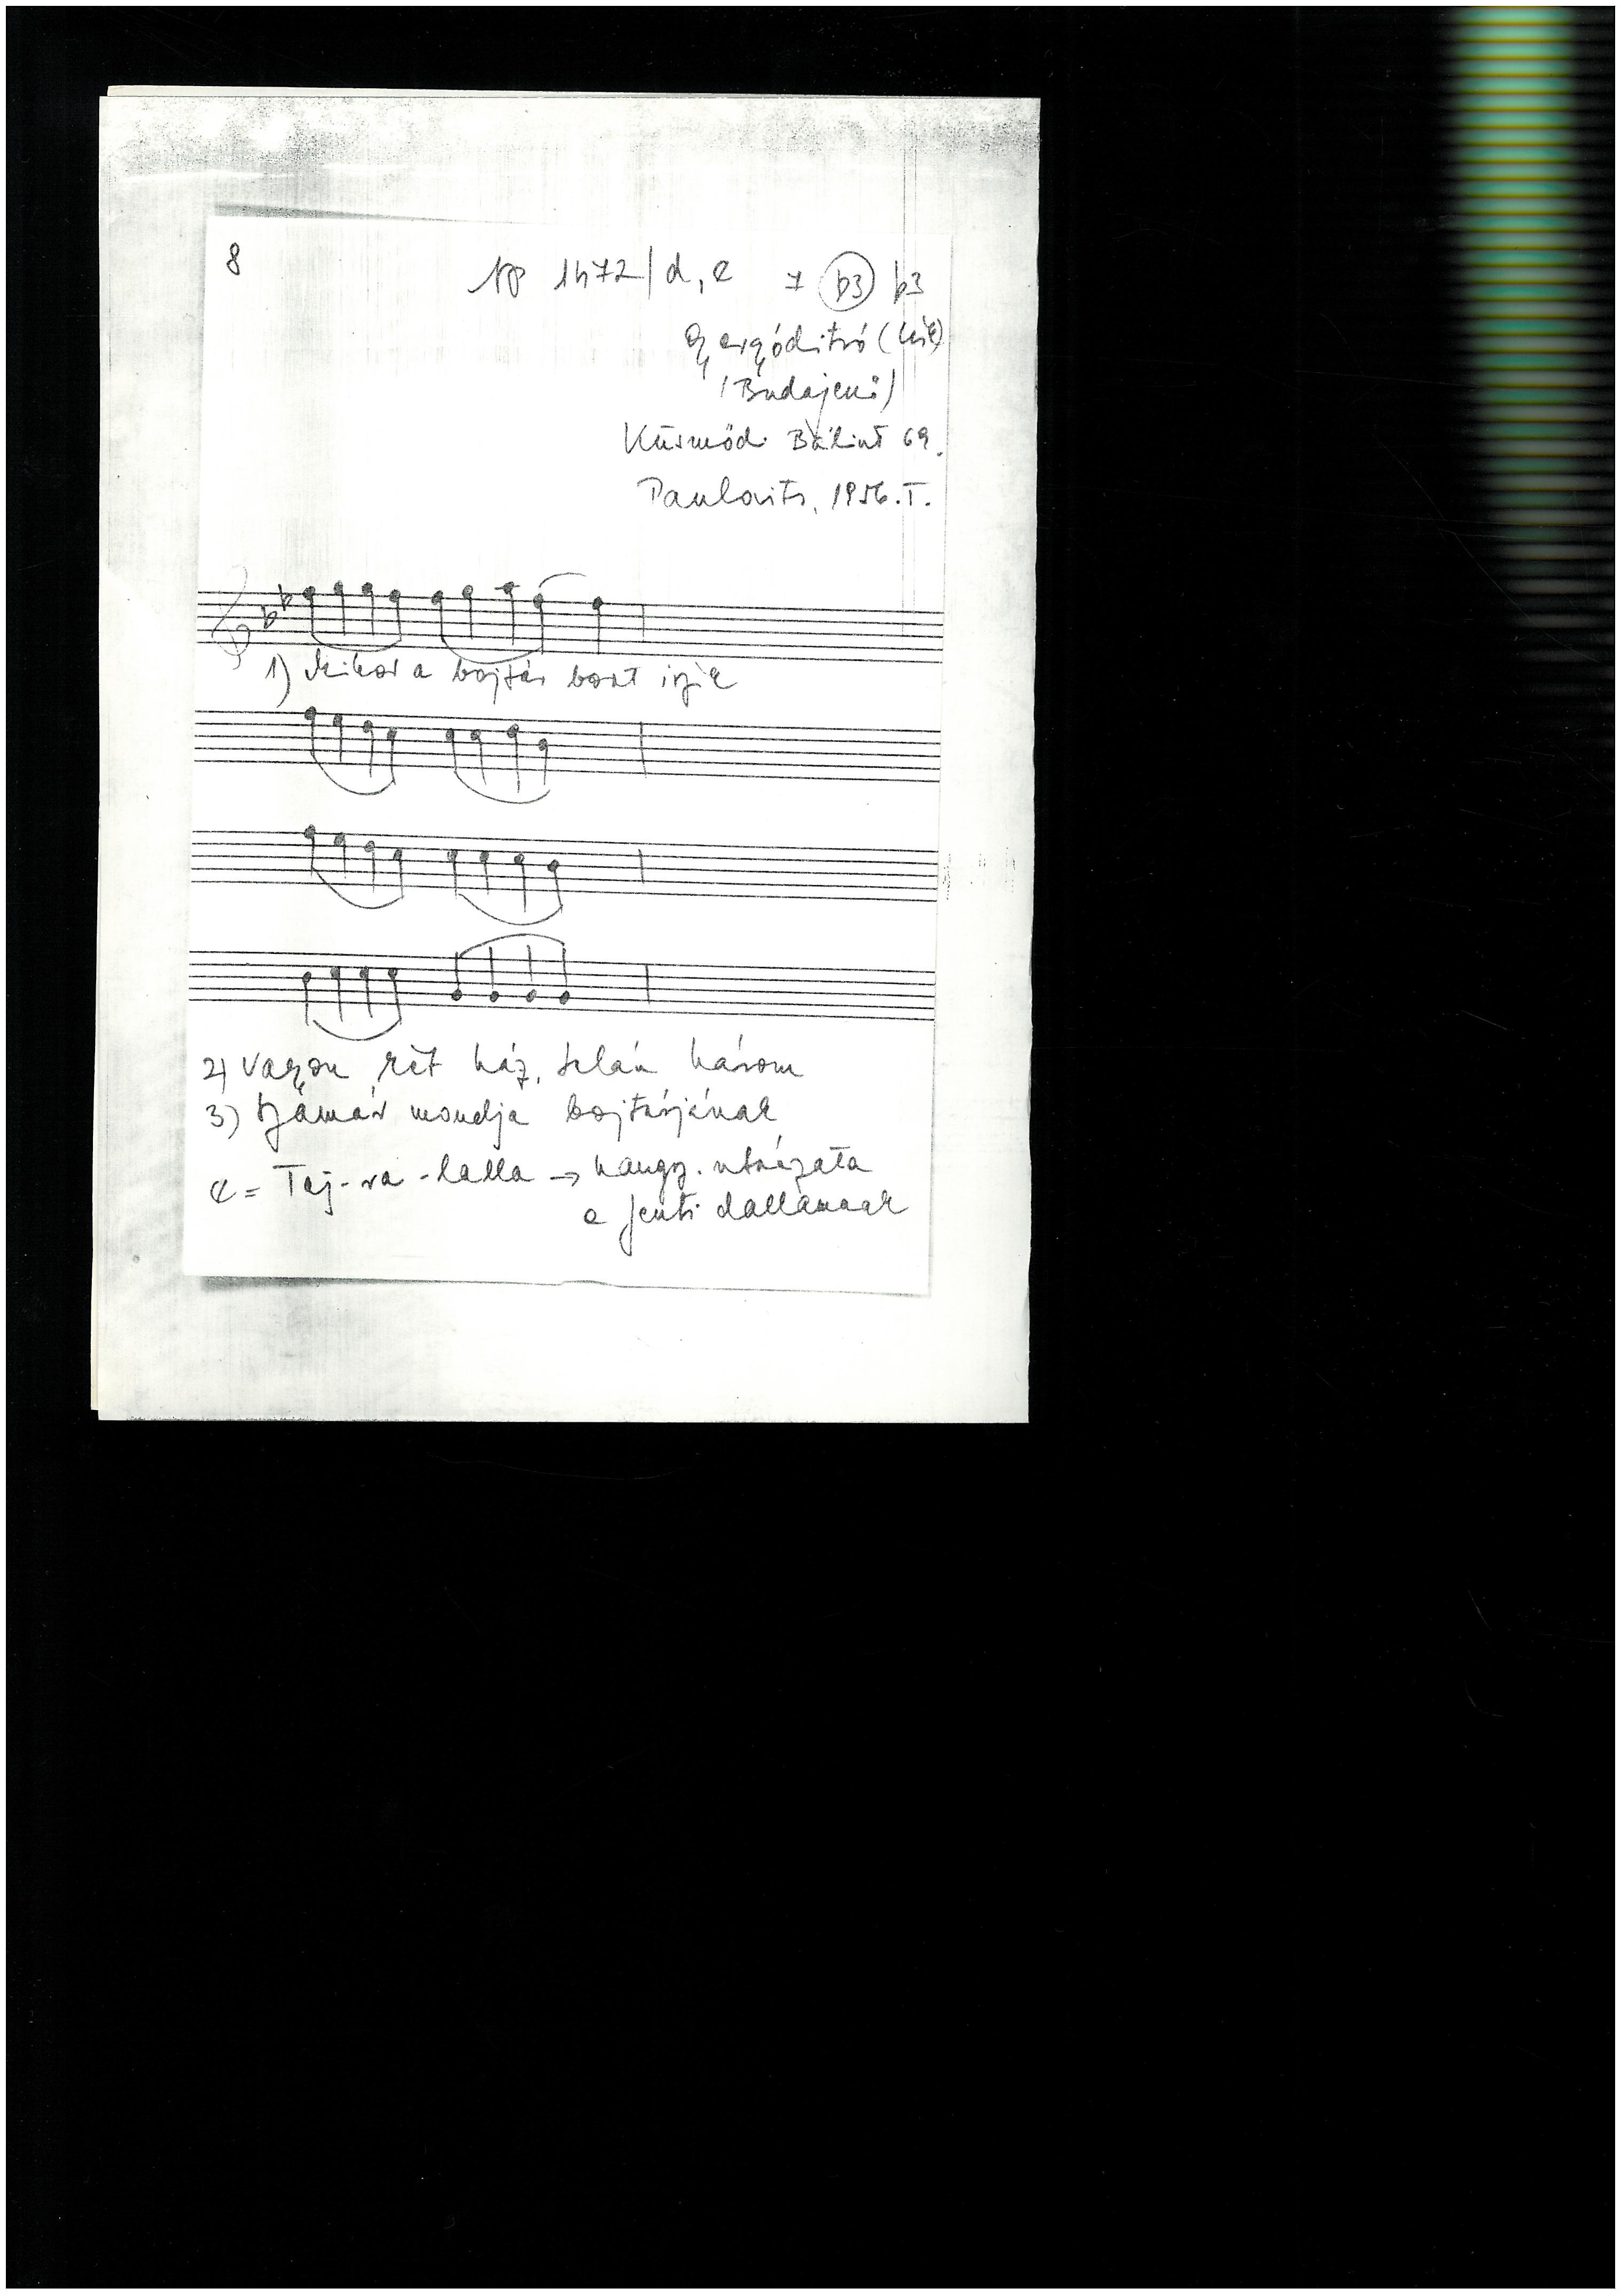 8
AP 1472/d,e 7 (b3) b3
Gyergóditró (Csík)
(Budajenő)
Küsmödi Bálint 69.
Paulovits, 1956. I.
1) Mikor a bojtár bort iszik
2) Vagyon két ház, talán három
3) Számár mondja bojtárjának
e = Taj-ra-lalla → hangsz. utánzata
a fenti dallamnak